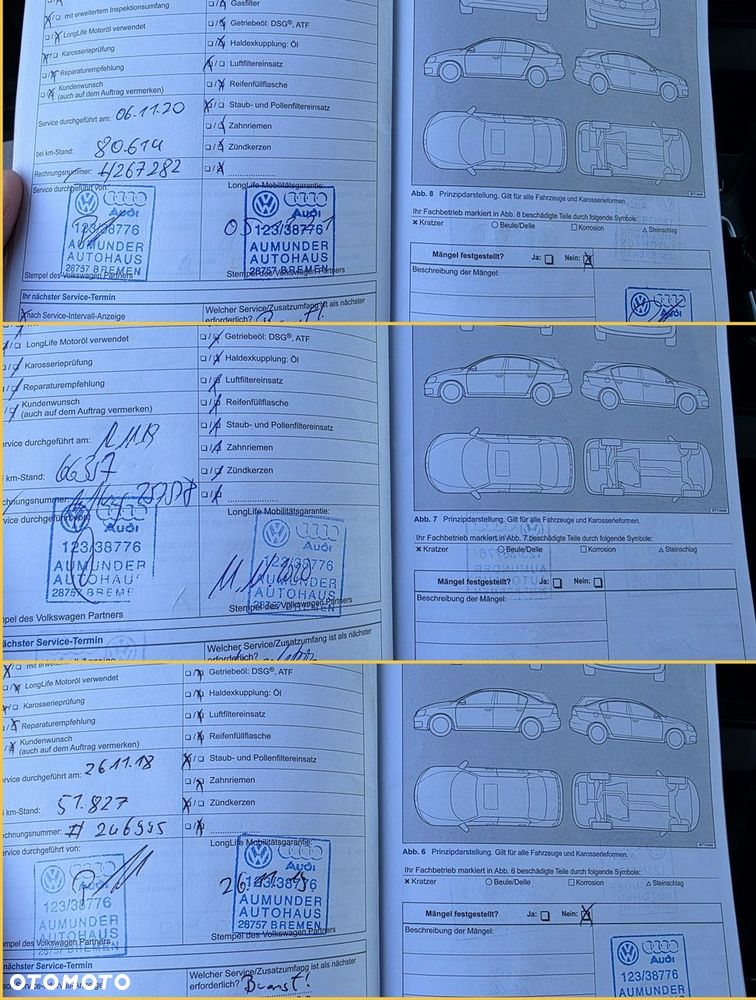 mit erweitertem Inspektionsumfang
LongLife Motoröl verwendet
Karosserieprüfung
Reparaturempfehlung
Kundenwunsch
(auch auf dem Auftrag vermerken)
Service durchgeführt am: 06.11.20
bei km-Stand: 80.614
Rechnungsnummer: 4267282
Service durchgeführt von:
Gasfilter
Getriebeöl: DSG®, ATF
Haldexkupplung: Öl
Luftfiltereinsatz
Reifenfüllflasche
Staub- und Pollenfiltereinsatz
Zahnriemen
Zündkerzen
LongLife Mobilitätsgarantie:
Audi
123/38776
AUMUNDER
AUTOHAUS
28757 BREMEN
Audi
123/38776
AUMUNDER
AUTOHAUS
28757 BREMEN
Stempel des Volkswagen Partners
Ihr nächster Service-Termin
nach Service-Intervall-Anzeige
Welcher Service/Zusatzumfang ist als nächster
erforderlich?
Abb. 8 Prinzipdarstellung. Gilt für alle Fahrzeuge und Karosserieformen.
Ihr Fachbetrieb markiert in Abb. 8 beschädigte Teile durch folgende Symbole:
Kratzer Beule/Delle Korrosion Steinschlag
Mängel festgestellt? Ja: Nein:
Beschreibung der Mängel:
Audi
LongLife Motoröl verwendet
Karosserieprüfung
Reparaturempfehlung
Kundenwunsch
(auch auf dem Auftrag vermerken)
ervice durchgeführt am:
km-Stand: 66357
chnungsnummer:
vice durchgeführt von:
Getriebeöl: DSG®, ATF
Haldexkupplung: Öl
Luftfiltereinsatz
Reifenfüllflasche
Staub- und Pollenfiltereinsatz
Zahnriemen
Zündkerzen
LongLife Mobilitätsgarantie:
Audi
123/38776
AUMUNDER
AUTOHAUS
28757 BREME
Audi
AUMUNDER
AUTOHAUS
pel des Volkswagen Partners
Stempel des Volkswagen Partners
ächster Service-Termin
Welcher Service/Zusatzumfang ist als nächster
erforderlich?
Abb. 7 Prinzipdarstellung. Gilt für alle Fahrzeuge und Karosserieformen.
Ihr Fachbetrieb markiert in Abb. 7 beschädigte Teile durch folgende Symbole:
Kratzer Beule/Delle Korrosion Steinschlag
Mängel festgestellt? Ja: Nein:
Beschreibung der Mängel:
LongLife Motoröl verwendet
Karosserieprüfung
Reparaturempfehlung
Kundenwunsch
(auch auf dem Auftrag vermerken)
ervice durchgeführt am: 26.11.18
km-Stand: 51.827
chnungsnummer:
ervice durchgeführt von:
Getriebeöl: DSG®, ATF
Haldexkupplung: Öl
Luftfiltereinsatz
Reifenfüllflasche
Staub- und Pollenfiltereinsatz
Zahnriemen
Zündkerzen
LongLife Mobilitätsgarantie:
Audi
123/38776
AUMUNDER
AUTOHAUS
28757 BREMEN
Audi
AUMUNDER
AUTOHAUS
28757 BREMEN
empel des Volkswagen Partners
Stempel des Volkswagen Partners
nächster Service-Termin
Welcher Service/Zusatzumfang ist als nächster
erforderlich?
Abb. 6 Prinzipdarstellung. Gilt für alle Fahrzeuge und Karosserieformen.
Ihr Fachbetrieb markiert in Abb. 6 beschädigte Teile durch folgende Symbole:
Kratzer Beule/Delle Korrosion Steinschlag
Mängel festgestellt? Ja: Nein:
Beschreibung der Mängel:
Audi
123/38776
AUMUNDER
AUTOHAUS
OTOMOTO